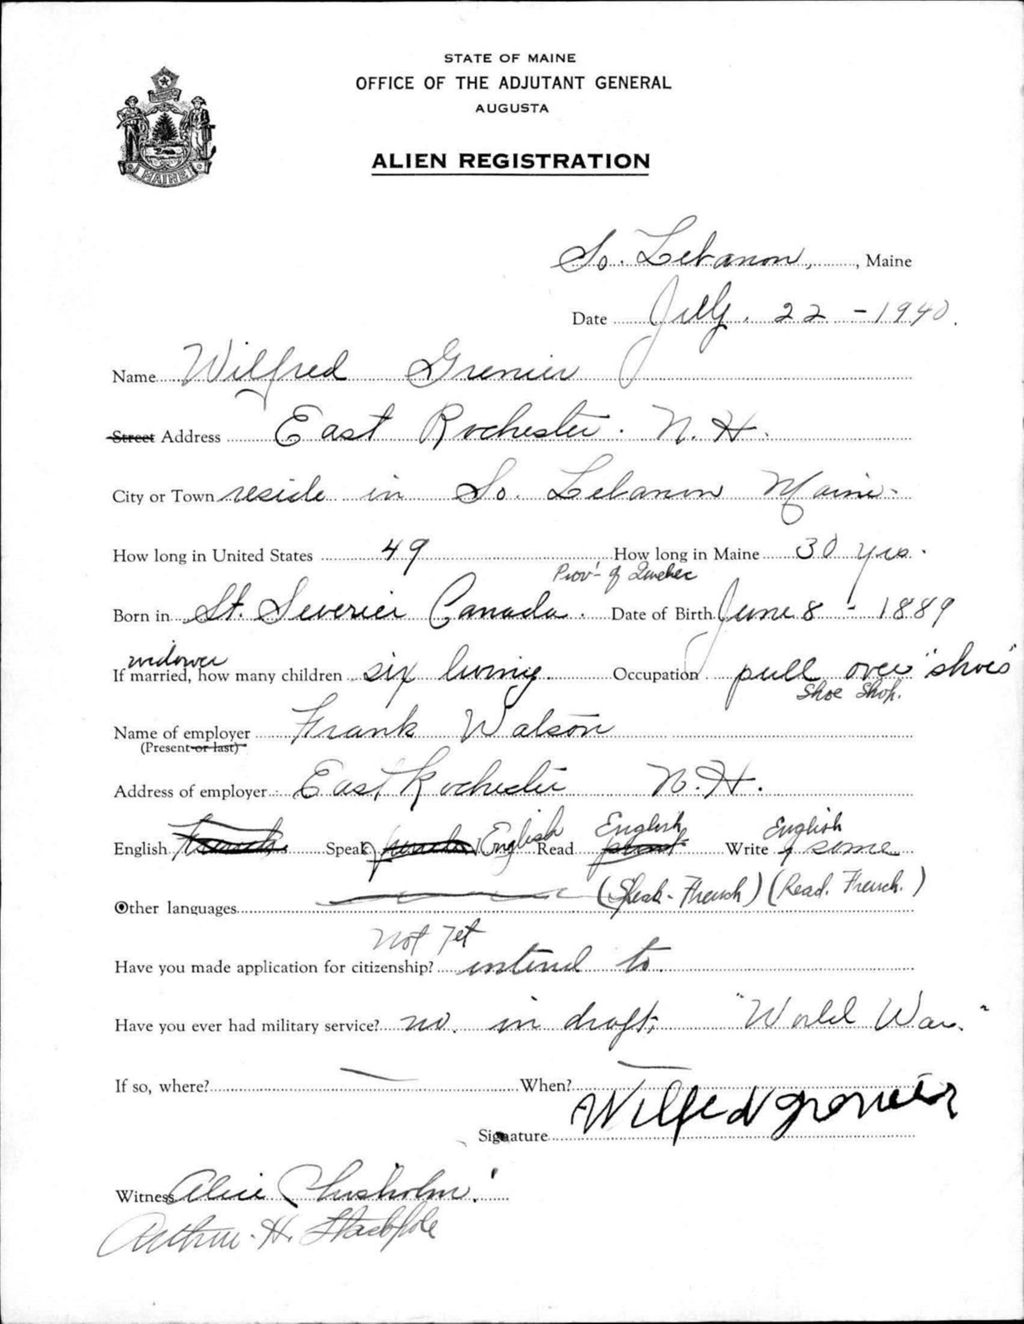 STATE OF MAINE
OFFICE OF THE ADJUTANT GENERAL
AUGUSTA
MAINE
ALIEN REGISTRATION
So. Lebanon, Maine
Date July. 22 - 1940.
Name Wilfred Grenier
Street Address East Rochester. N. H.
City or Town reside in So. Lebanon Maine.
How long in United States 49 How long in Maine 30 yrs.
Prov. of Quebec
Born in St. Severier Canada. Date of Birth June 8 - 1889
widower
If married, how many children six living Occupation pull over "shoes"
Shoe Shop.
Name of employer Frank Watson
(Present or last)
Address of employer East Rochester N. H.
English Speak English Read English Write English some
Other languages (Speak - French) (Read. French.)
Not Yet
Have you made application for citizenship? intend to.
Have you ever had military service? no. in draft; "World War."
If so, where? When?
Signature Wilfred Grenier
Witness Alice Chisholm
Arthur H. Stackpole